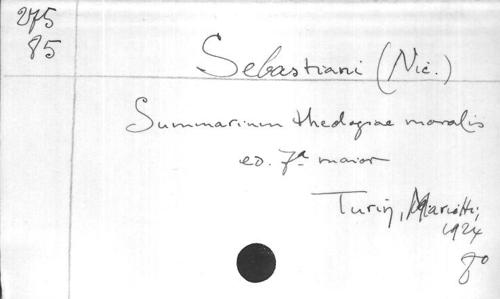 275
85
Sebastiani (Nic.)
Summarium theologiae moralis
ed. 7ª maior
Turin, Marietti,
1924
8º